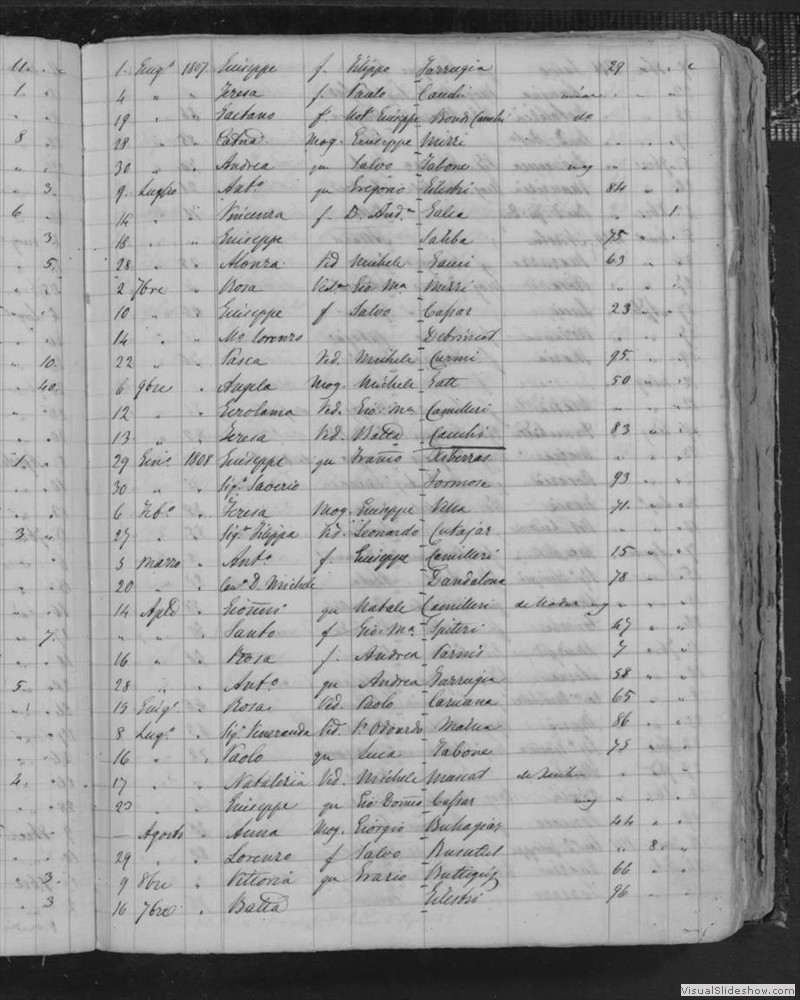 11 . .
1 . .
8 . .
. 3.
6 .
3.
. 5.
. 10.
. 40.
1 .
3. .
7.
5. .
4. .
. 3.
. 3
1. Giugo 1807 Giuseppe f. Filippo Farrugia 29 . .
4 " " Teresa f. Paolo Cauchi
19 " " Gaetano f. Not Giuseppe Bondi Cauchi do
28 " " Mog. Giuseppe Mizzi
30 " " Andrea qu Salvo Tabone
9. Luglio " Anto qu Gregorio Ellestri 84 . "
14 . " Vincenza f D. Anda Galea " 1
18 . " Giuseppe Saliba 75 . .
28 " . Alonza Vid Michele Gauci 63 . .
2 7bre . Rosa Vida Gio Ma Mizzi
10 " . Giuseppe f Salvo Cassar 23 . .
14 . . Mo Lorenzo Debrincat
22 " " Pasca Vid. Michele Curmi 95. . .
6 9bre . Angela Mog. Michele Gatt 50 . .
12 . . Gerolama Vid. Gio Ma Camilleri
13 " . Teresa Vid. Batta Cauchi 83 . .
29 Geno 1808 Giuseppe qu Franco Asberras
30 " " Sigr Saverio Formosa 93 . .
6 Febo . Teresa Mog. Giuseppe Vella 71. . .
27 . . Sigra Filippa Vid Leonardo Cutajar
3 Marzo . Anto f. Giuseppe Camilleri 15 . .
20 " . Cano D. Michele Dandalona 78 . .
14 Aple . qu Natale Camilleri
" " . Santo f Gio Ma Spiteri 67 . "
16 . " Rosa f. Andrea 7 . "
28 " . Anto qu Andrea Farrugia 58 . "
15 Giugo . Rosa Vid. Paolo Caruana 65 . .
8 Lugo . Sigra Veneranda Vid. Odoardo 86 . .
16 " . Paolo qu Luca Tabone 75 . .
17 . . Natalizia Vid. Michele Muscat
23 . . Giuseppe qu Gio Domco Cassar
— Agosto . Anna Mog. Giorgio Buhagiar 44 . .
29 . " Lorenzo f Salvo Busuttil " 8. .
9 8bre " Vittoria qu Buttigieg 66 . "
16 7bre . Batta Ellestri 96 . .
VisualSlideshow.com